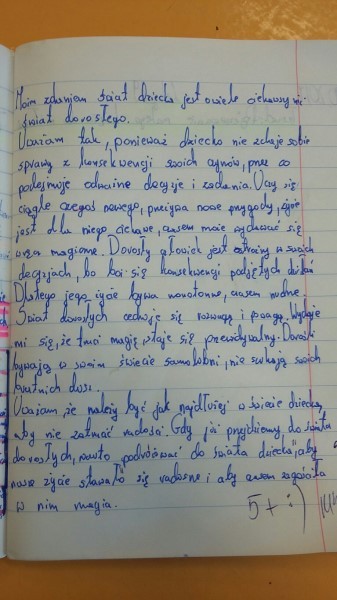 Moim zdaniem świat dziecka jest o wiele ciekawszy niż
świat dorosłego.
Uważam tak, ponieważ dziecko nie zdaje sobie
sprawy z konsekwencji swoich czynów, przez co
podejmuje odważne decyzje i zadania. Uczy się
ciągle czegoś nowego, przeżywa nowe przygody, życie
jest dla niego ciekawe, czasem może wydawać się
wręcz magiczne. Dorosły człowiek jest ostrożny w swoich
decyzjach, bo boi się konsekwencji podjętych działań
Dlatego jego życie bywa monotonne, czasem nudne.
Świat dorosłych cechuje się rozwagą i powagą. Wydaje
mi się, że traci magię, staje się przewidywalny. Dorośli
bywają w swoim świecie samolubni, nie szukają swoich
bratnich dusz.
Uważam, że należy być jak najdłużej w świecie dziecka,
aby nie zatracić radości. Gdy już przejdziemy do świata
dorosłych, warto podróżować do świata dziecka, aby
nasze życie stawało się radosne i aby czasem zagościła
w nim magia.
5+ :)